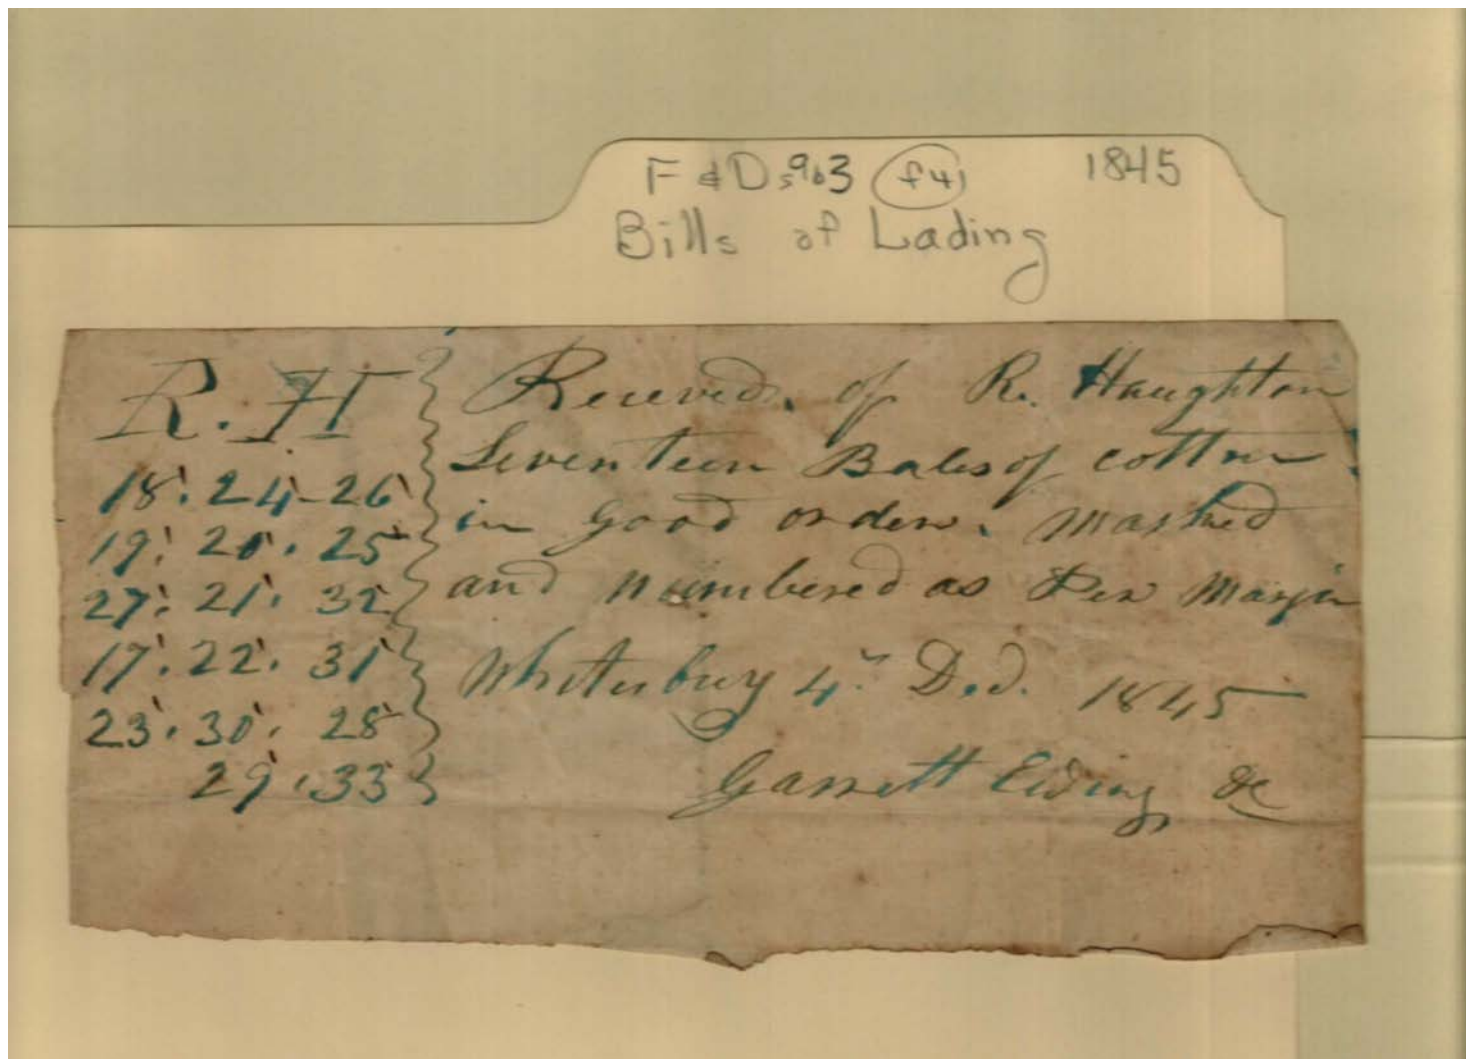 F & D 963 (f4) 1845
Bills of Lading
R. H
18. 24 - 26
19. 20. 25
27. 21. 32
17. 22. 31
23. 30. 28
29. 33
Received, of R. Haughton
Seventeen Bales of cotton
in good order. marked
and numbered as Per Margin
4th 1845
Garrett &c